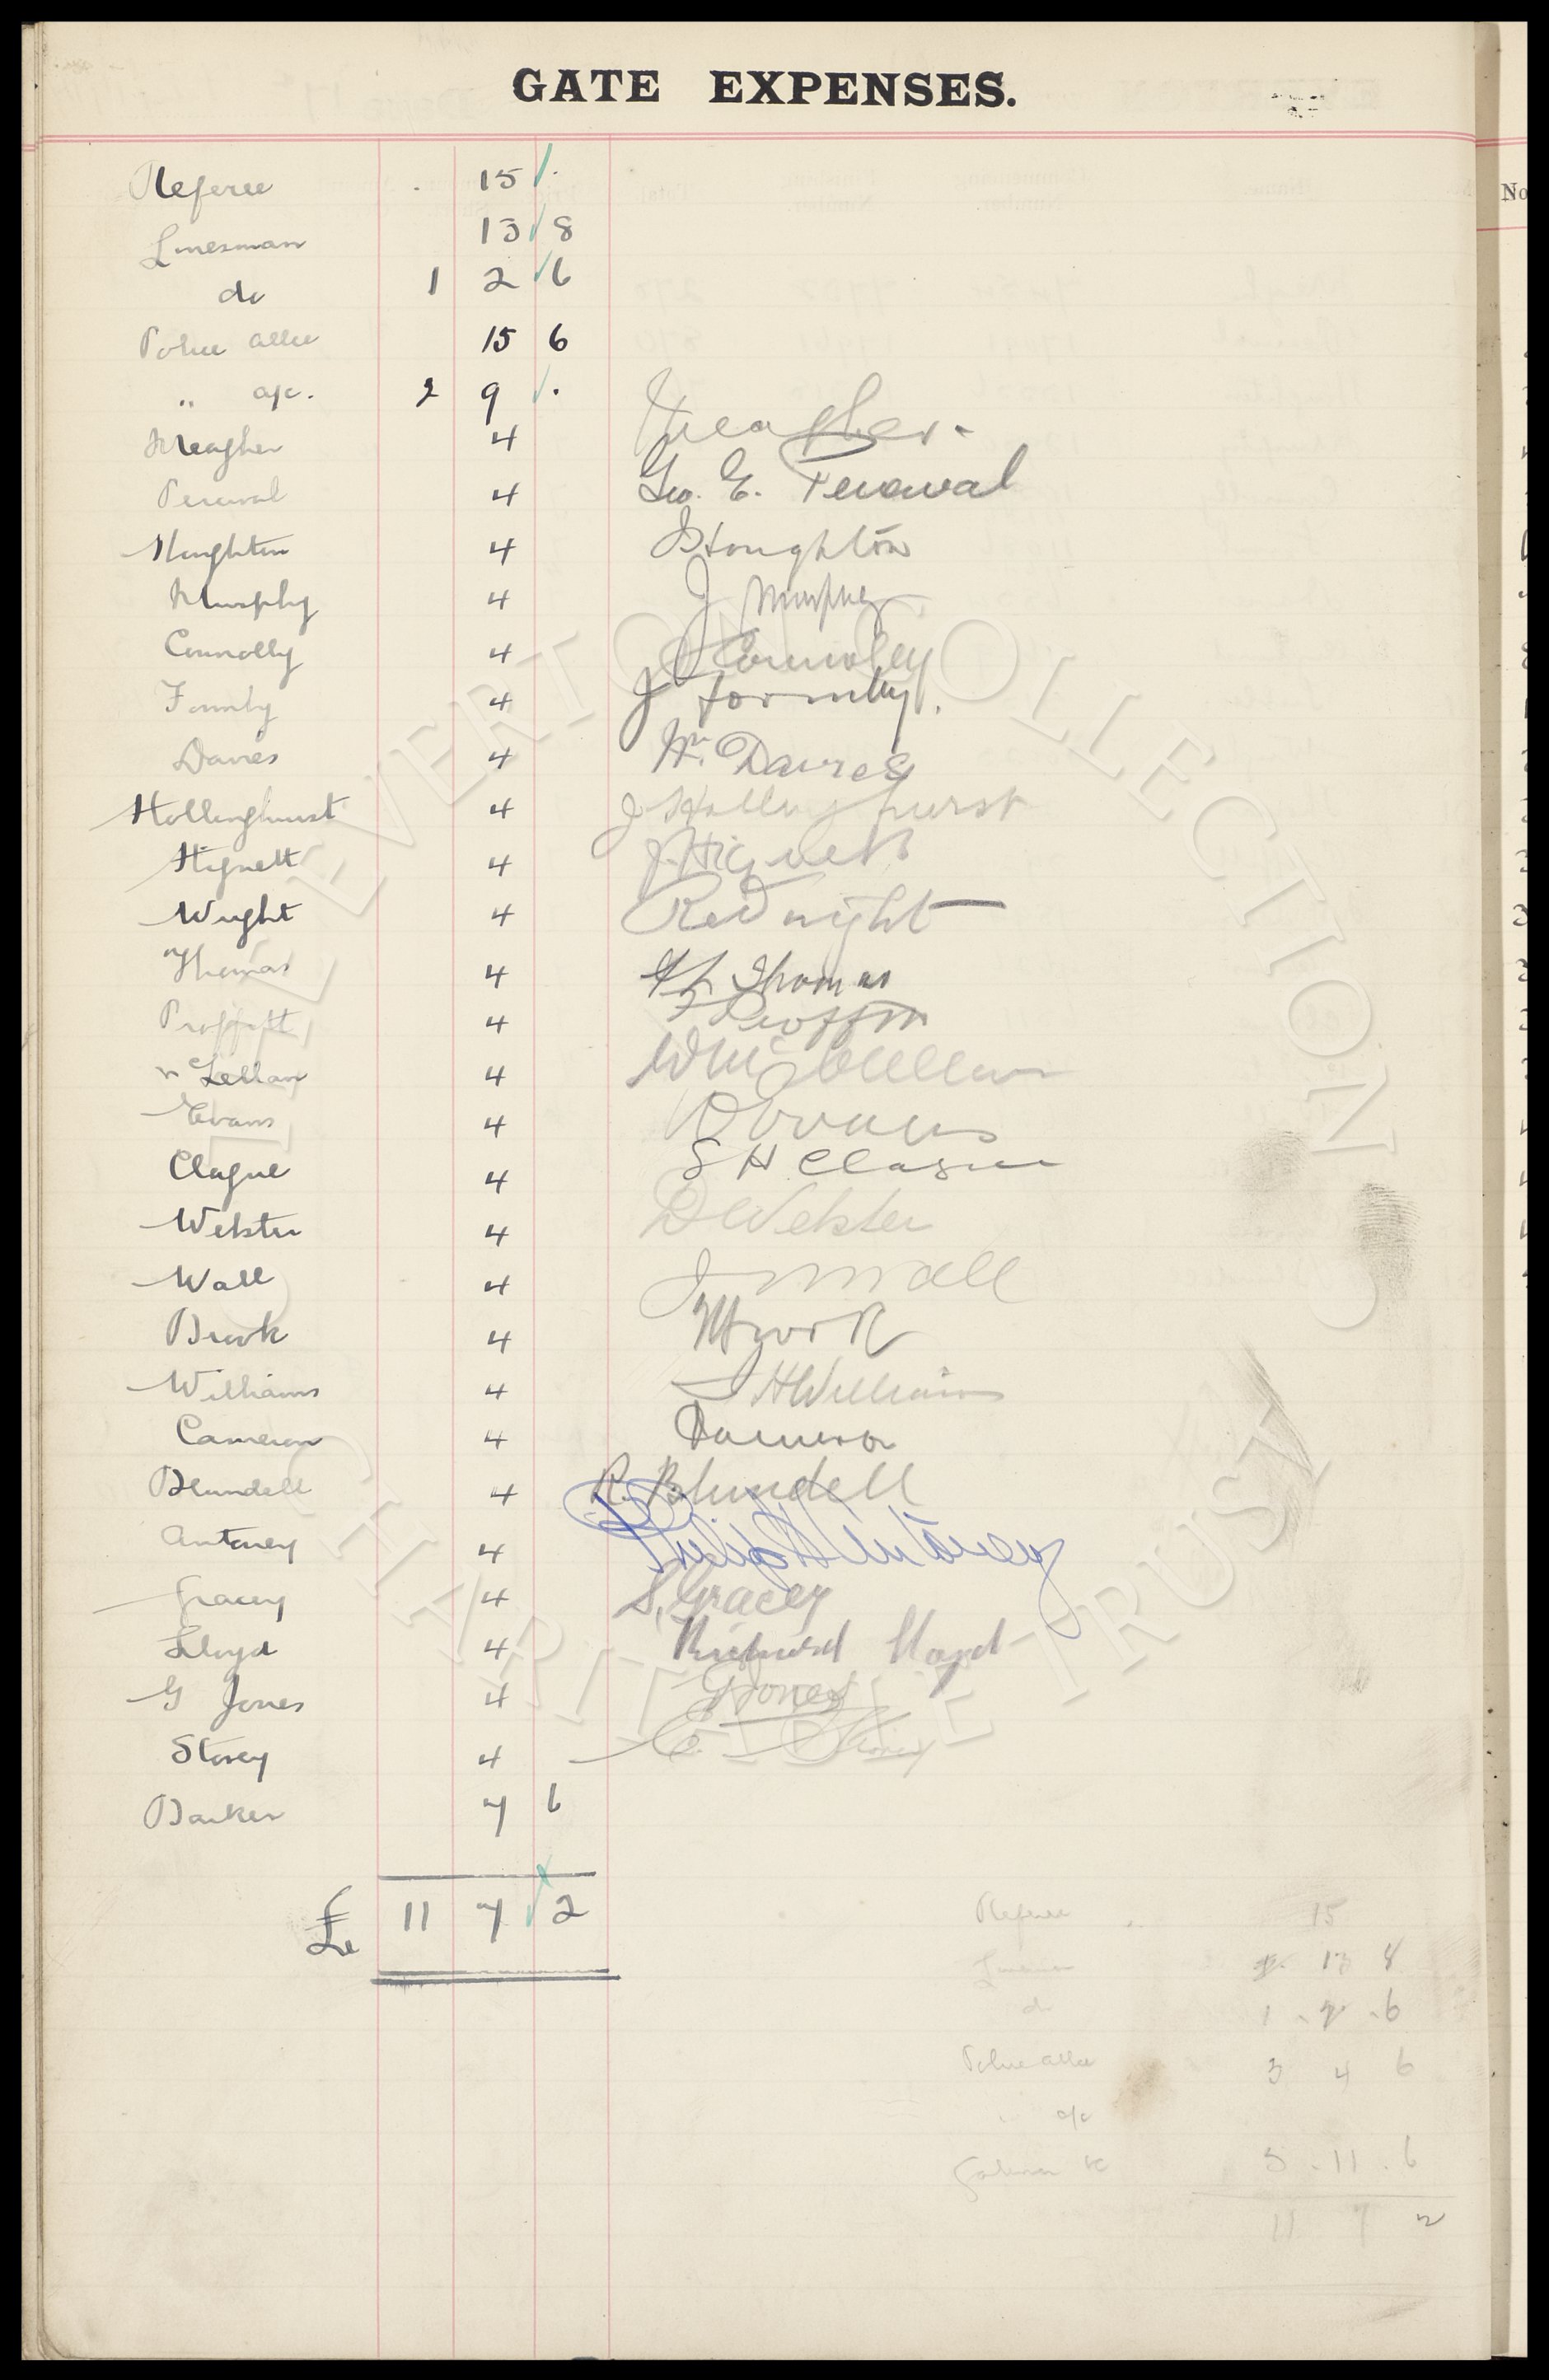 GATE EXPENSES.
Referee . 15 .
Linesman 13 8
do 1 2 6
Police allce 15 6
" a/c. 2 9 .
Meagher 4 Meagher.
Percival 4 Geo. E. Percival
Houghton 4 Houghton
Murphy 4 J Murphy
Connolly 4 J Connolly
Formby 4 J Formby.
Davies 4 Wm Davies
Hollinghurst 4 J Hollinghurst
Hignett 4 J. Hignett
Wright 4 Wright
Thomas 4 Thomas
Proffitt 4 Proffitt
McLellan 4 W McClellan
Evans 4 Evans
Clague 4 S H Clague
Webster 4 D Webster
Wall 4 J Wall
Brook 4 Brook
Williams 4 J H Williams
Cameron 4 Cameron
Blundell 4 R. Blundell
Antoney 4 Philip H Antoney
Gracey 4 S. Gracey
Lloyd 4 Richard Lloyd
G Jones 4 G Jones
Storey 4 E. Storey
Barker 7 6
£ 11 7 2
Referee 15
Linesman 13 8
do 1 . 2 . 6
Police allce 3 4 6
a/c
Gatemen &c 5 . 11 . 6
11 7 2
No
EVERTON COLLECTION CHARITABLE TRUST